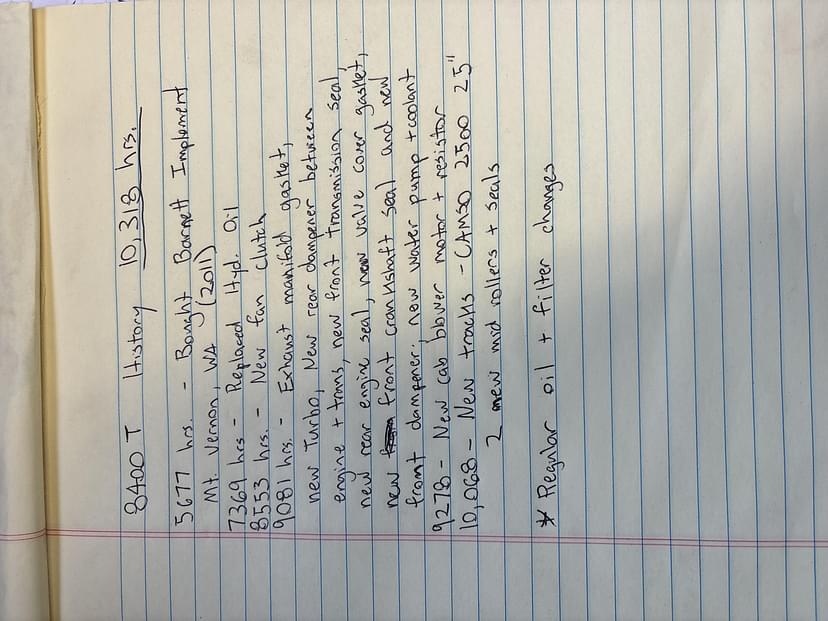 8400T History 10,318 hrs.
5677 hrs. - Bought Barnett Implement
Mt. Vernon, WA (2011)
7369 hrs - Replaced Hyd. Oil
8553 hrs. - New fan clutch
9081 hrs. - Exhaust manifold gasket,
new Turbo, New rear dampener between
engine + trans, new front transmission seal,
new rear engine seal, new valve cover gasket,
new front crankshaft seal and new
front dampener. new water pump + coolant
9278 - New cab blower motor + resistor
10,068 - New tracks - CAMSO 2500 25"
2 new mid rollers + seals
* Regular oil + filter changes